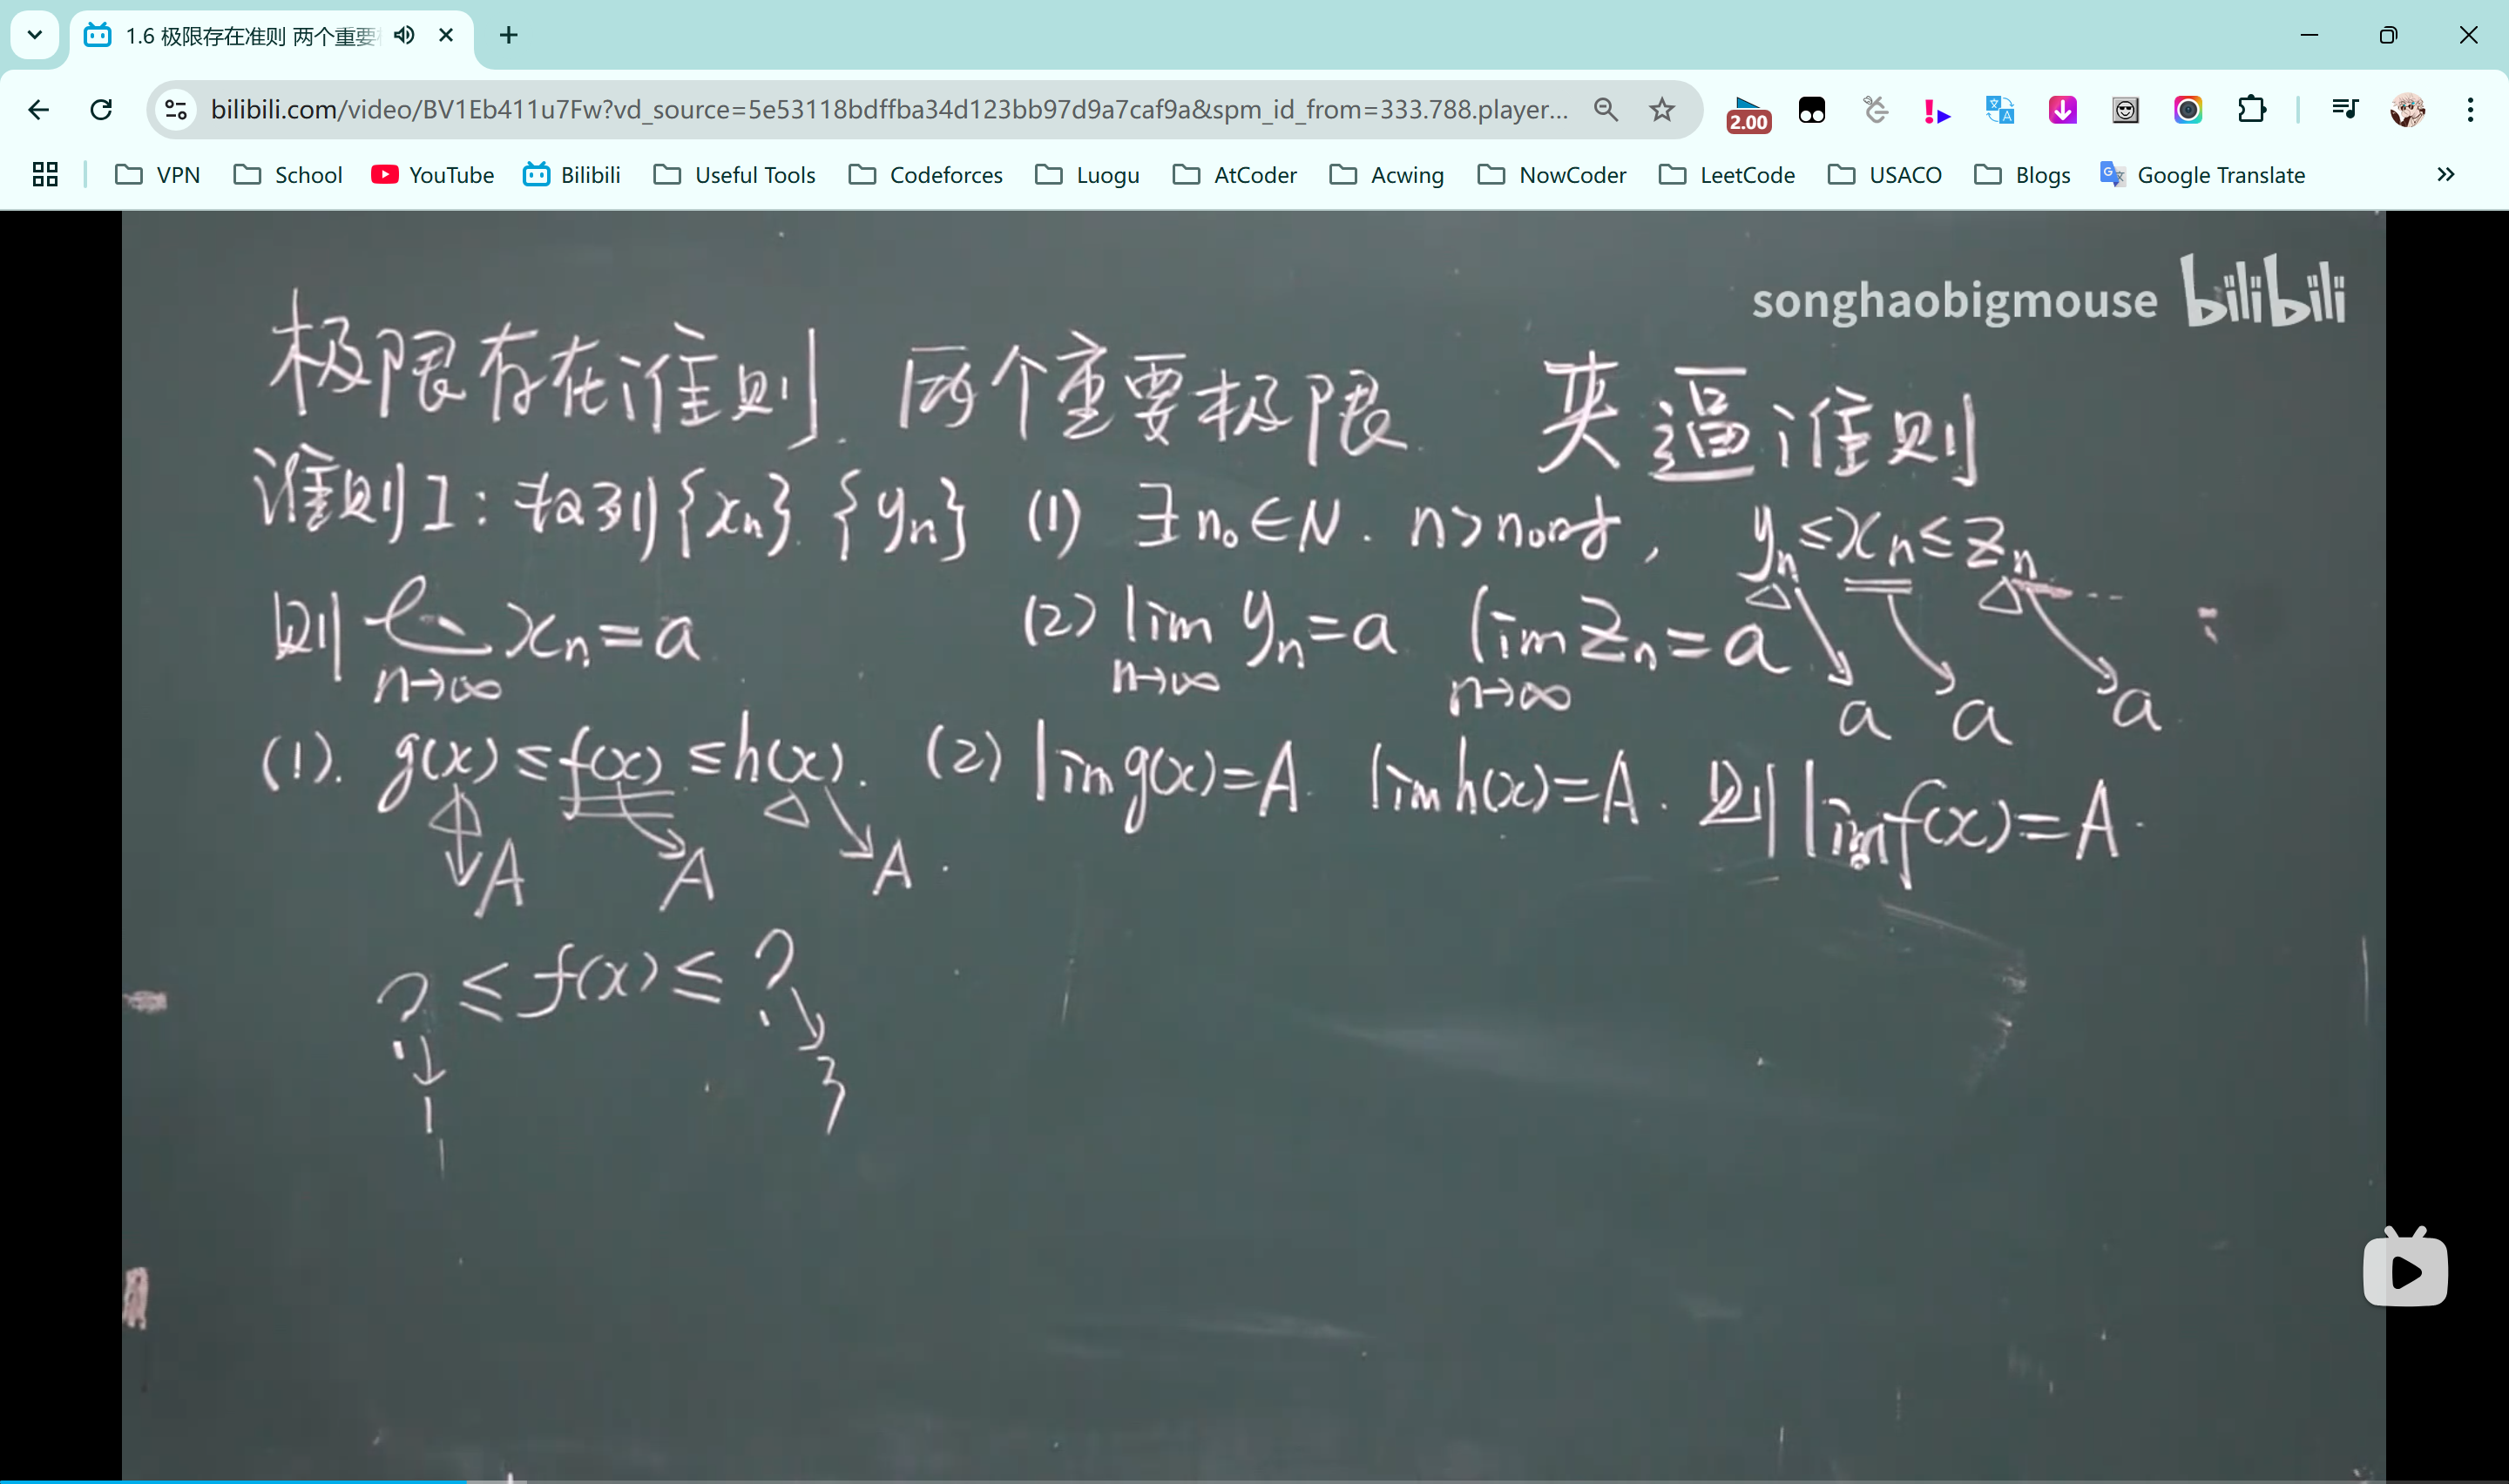 1.6 极限存在准则 两个重要
bilibili.com/video/BV1Eb411u7Fw?vd_source=5e53118bdffba34d123bb97d9a7caf9a&spm_id_from=333.788.player...
2.00
VPN School YouTube Bilibili Useful Tools Codeforces Luogu AtCoder Acwing NowCoder LeetCode USACO Blogs Google Translate
songhaobigmouse bilibili
极限存在准则. 两个重要极限. 夹逼准则
准则I: 数列{xn}. {yn} (1) ∃ n₀∈N. n>n₀时, yn≤xn≤zn
则 lim xn=a (2) lim yn=a lim zn=a
n→∞ n→∞ n→∞
a a a
(1). g(x)≤f(x)≤h(x). (2) lim g(x)=A. lim h(x)=A. 则 lim f(x)=A.
A A A.
? ≤ f(x) ≤ ?
1 3